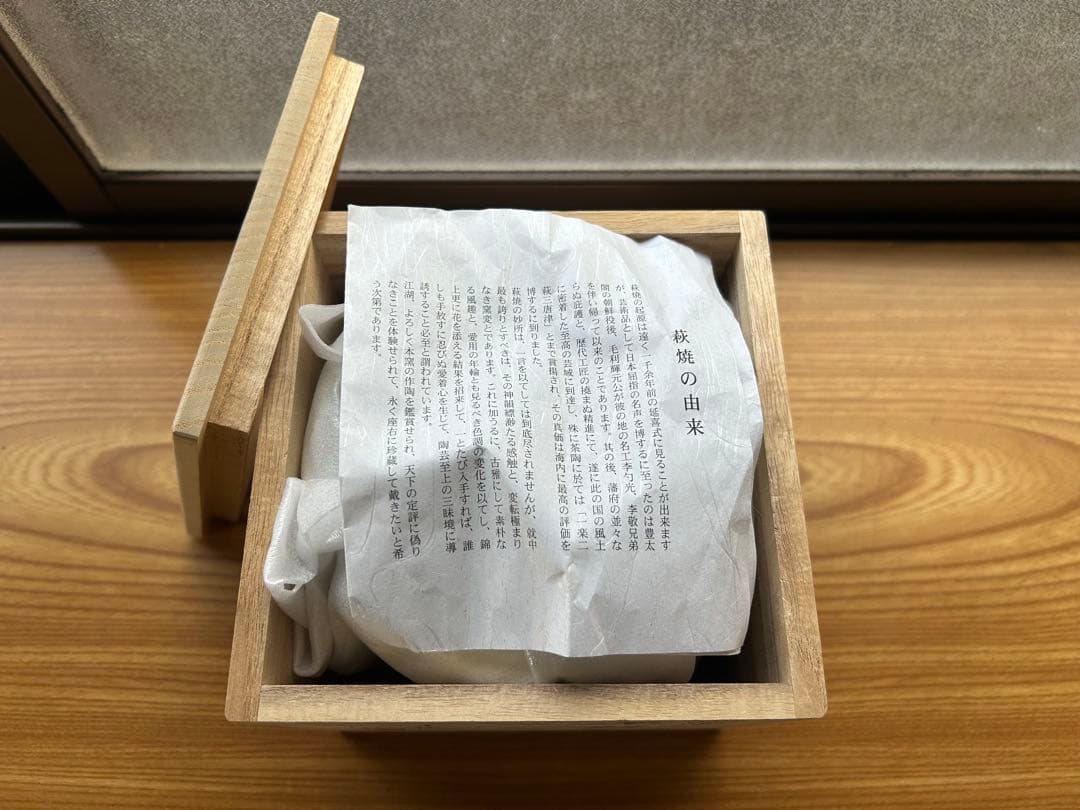 萩焼の由来
萩焼の起源は遠く一千余年前の延喜式に見ることが出来ます
が、芸術品として日本屈指の名声を博するに至ったのは豊太
閤の朝鮮役後、毛利輝元公が彼の地の名工李勺光、李敬兄弟
を伴い帰って以来のことであります。其の後、藩府の並々な
らぬ庇護と、歴代工匠の撓まぬ精進にて、遂に此の国の風土
に密着した至高の芸域に到達し、殊に茶陶に於ては「一楽二
萩三唐津」とまで賞揚され、その真価は海内に最高の評価を
博するに到りました。
萩焼の妙所は、一言を以てしては到底尽されませんが、就中
最も誇りとすべきは、その神韻縹渺たる感触と、変転極まり
なき窯変とであります。これに加うるに、古雅にして素朴な
る風趣と、愛用の年輪とも見るべき色調の変化を以てし、錦
上更に花を添える結果を招来して、一とたび入手すれば、誰
しも手放すに忍びぬ愛着心を生じて、陶芸至上の三昧境に導
誘すること必至と謂われています。
江湖、よろしく本窯の作陶を鑑賞せられ、天下の定評に偽り
なきことを体験せられて、永く座右に珍蔵して戴きたいと希
う次第であります。